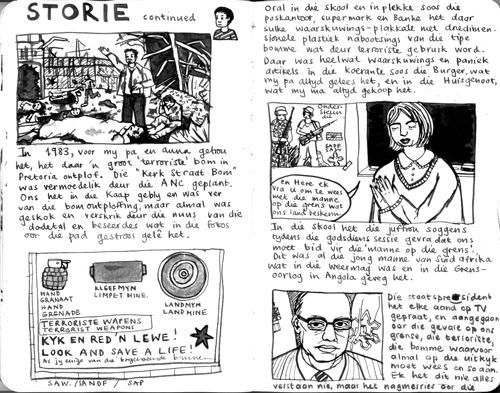 STORIE continued
In 1983, voor my pa en anna getrou
het, het daar 'n groot 'terroriste' bom in
Pretoria ontplof. Die "Kerk Straat Bom"
was vermoedelik deur die ANC geplant.
Ons het in die Kaap gebly en was ver
van die bomontploffing, maar almal was
geskok en verskrik deur die nuus van die
dodetal en beseerdes wat in die fotos
oor die pad gestrooi gelê het.
HAND
GRANAAT
HAND
GRENADE
KLEEFMYN
LIMPET MINE.
LANDMYN
LAND MINE
TERRORISTE WAPENS
TERRORIST WEAPONS
KYK EN RED 'N LEWE!
LOOK AND SAVE A LIFE!
As jy enige van die
SAW./SANDF / SAP
Oral in die skool en in plekke soos die
poskantoor, supermark en Banke het daar
sulke waarskuwings-plakkate met driedimen-
sionele plastiek nabootsings van die tipe
bomme wat deur terroriste gebruik word.
Daar was heelwat waarskuwings en paniek
artikels in die koerante soos die Burger, wat
my pa altyd gelees het, en in die Huisgenoot,
wat my ma altyd gekoop het.
Onder-
steun
die
SADF
en Here ek
vra U om te wees
met die manne
op die grens wat
ons land beskerm
In die skool het die juffrou soggens
tydens die godsdiens sessie gevra dat ons
moet bid vir die 'manne op die grens'.
Dit was al die jong manne van Suid Afrika
wat in die weermag was en in die Grens-
oorlog in Angola geveg het.
Die staatspresident
het elke aand op TV
gepraat, en aangegaan
oor die gevare op ons
grense, die terroriste,
die bomme waarvoor
almal op die uitkyk
moet wees en so aan.
Ek het dit nie alles
verstaan nie, maar het nagmerries oor die